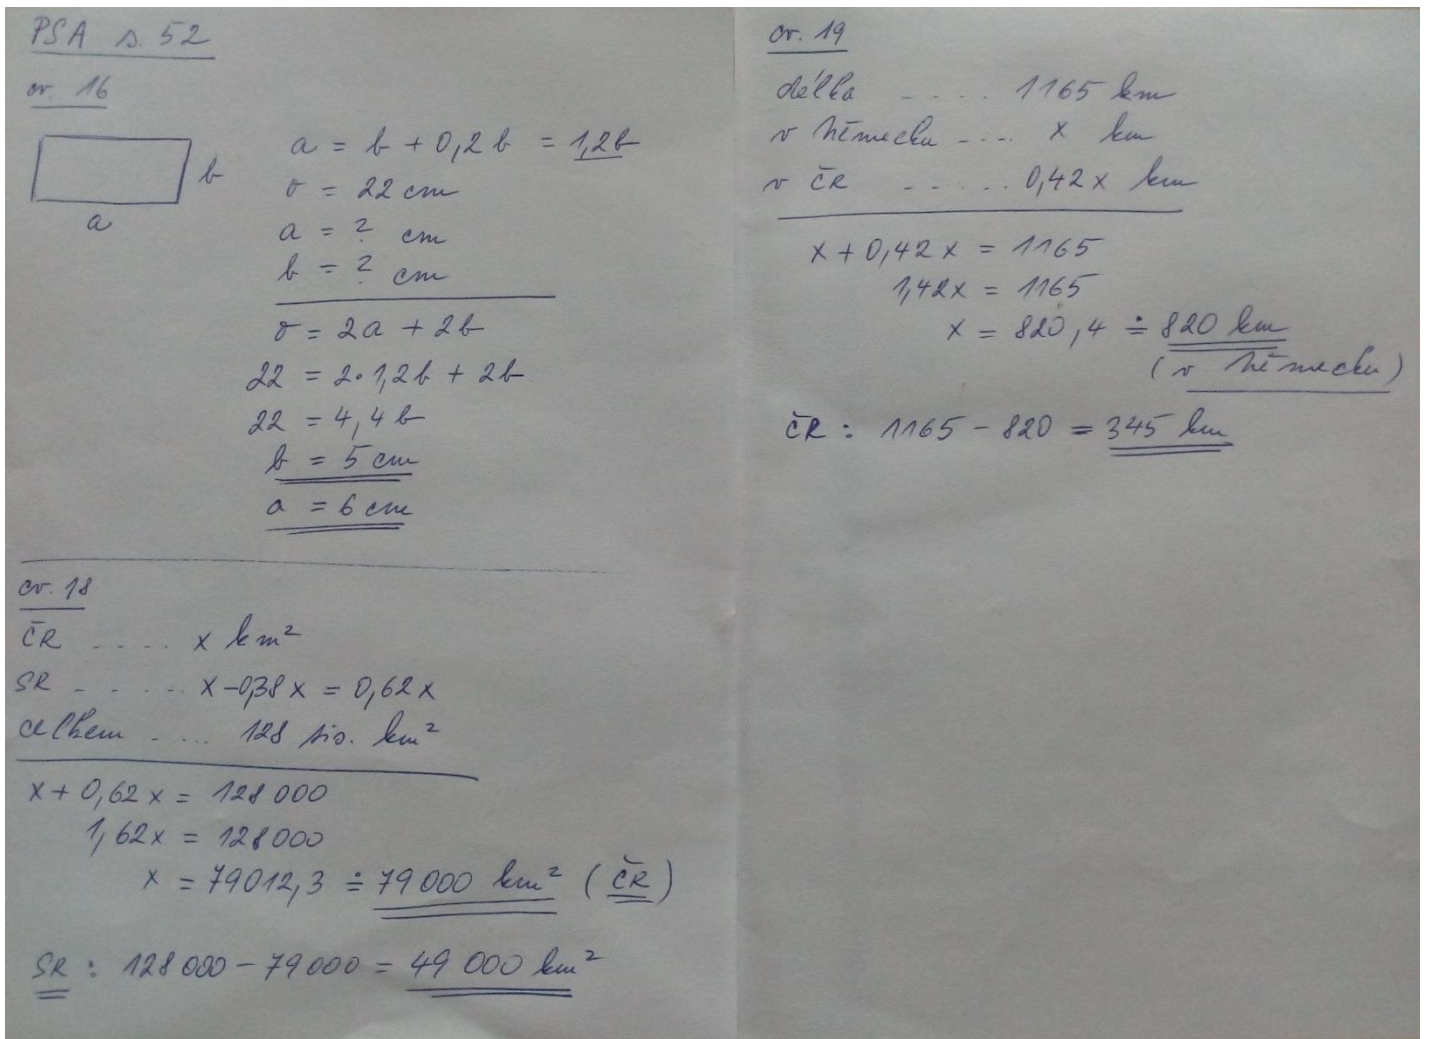 PSA s. 52
cv. 16
b
a
a = b + 0,2b = 1,2b
o = 22 cm
a = ? cm
b = ? cm
o = 2a + 2b
22 = 2·1,2b + 2b
22 = 4,4b
b = 5 cm
a = 6 cm
cv. 18
ČR .... x km²
SR ..... x-0,38x = 0,62x
celkem .... 128 tis. km²
x + 0,62x = 128 000
1,62x = 128000
x = 79012,3 ≐ 79 000 km² (ČR)
SR : 128 000 - 79 000 = 49 000 km²
cv. 19
délka .... 1165 km
v Německu .... x km
v ČR ..... 0,42x km
x + 0,42x = 1165
1,42x = 1165
x = 820,4 ≐ 820 km
(v Německu)
ČR : 1165 - 820 = 345 km